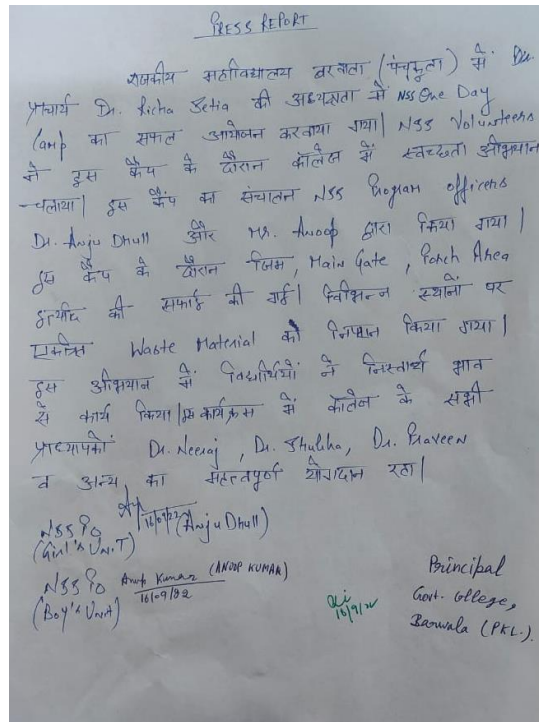 PRESS REPORT
राजकीय महाविद्यालय बरवाला (पंचकूला) में
प्राचार्य Dr. Richa Setia की अध्यक्षता में NSS One Day
Camp का सफल आयोजन करवाया गया। NSS Volunteers
ने इस कैंप के दौरान कॉलेज में स्वच्छता अभियान
चलाया। इस कैंप का संचालन NSS Program officers
Dr. Anju Dhull और Mr. Anoop द्वारा किया गया।
इस कैंप के दौरान जिम, Main Gate, Porch Area
इत्यादि की सफाई की गई। विभिन्न स्थानों पर
एकत्रित Waste Material का निपटान किया गया।
इस अभियान में विद्यार्थियों ने निस्वार्थ भाव
से कार्य किया। इस कार्यक्रम में कॉलेज के सभी
प्राध्यापकों Dr. Neeraj, Dr. Shulika, Dr. Praveen
व अन्य का महत्वपूर्ण योगदान रहा।
NSS PO 16/09/22 (Anju Dhull)
(Girl's UniT)
NSS PO Anup Kumar (ANOOP KUMAR)
16/09/22
(Boy's Unit)
16/9/22
Principal
Govt. College,
Barwala (PKL.)